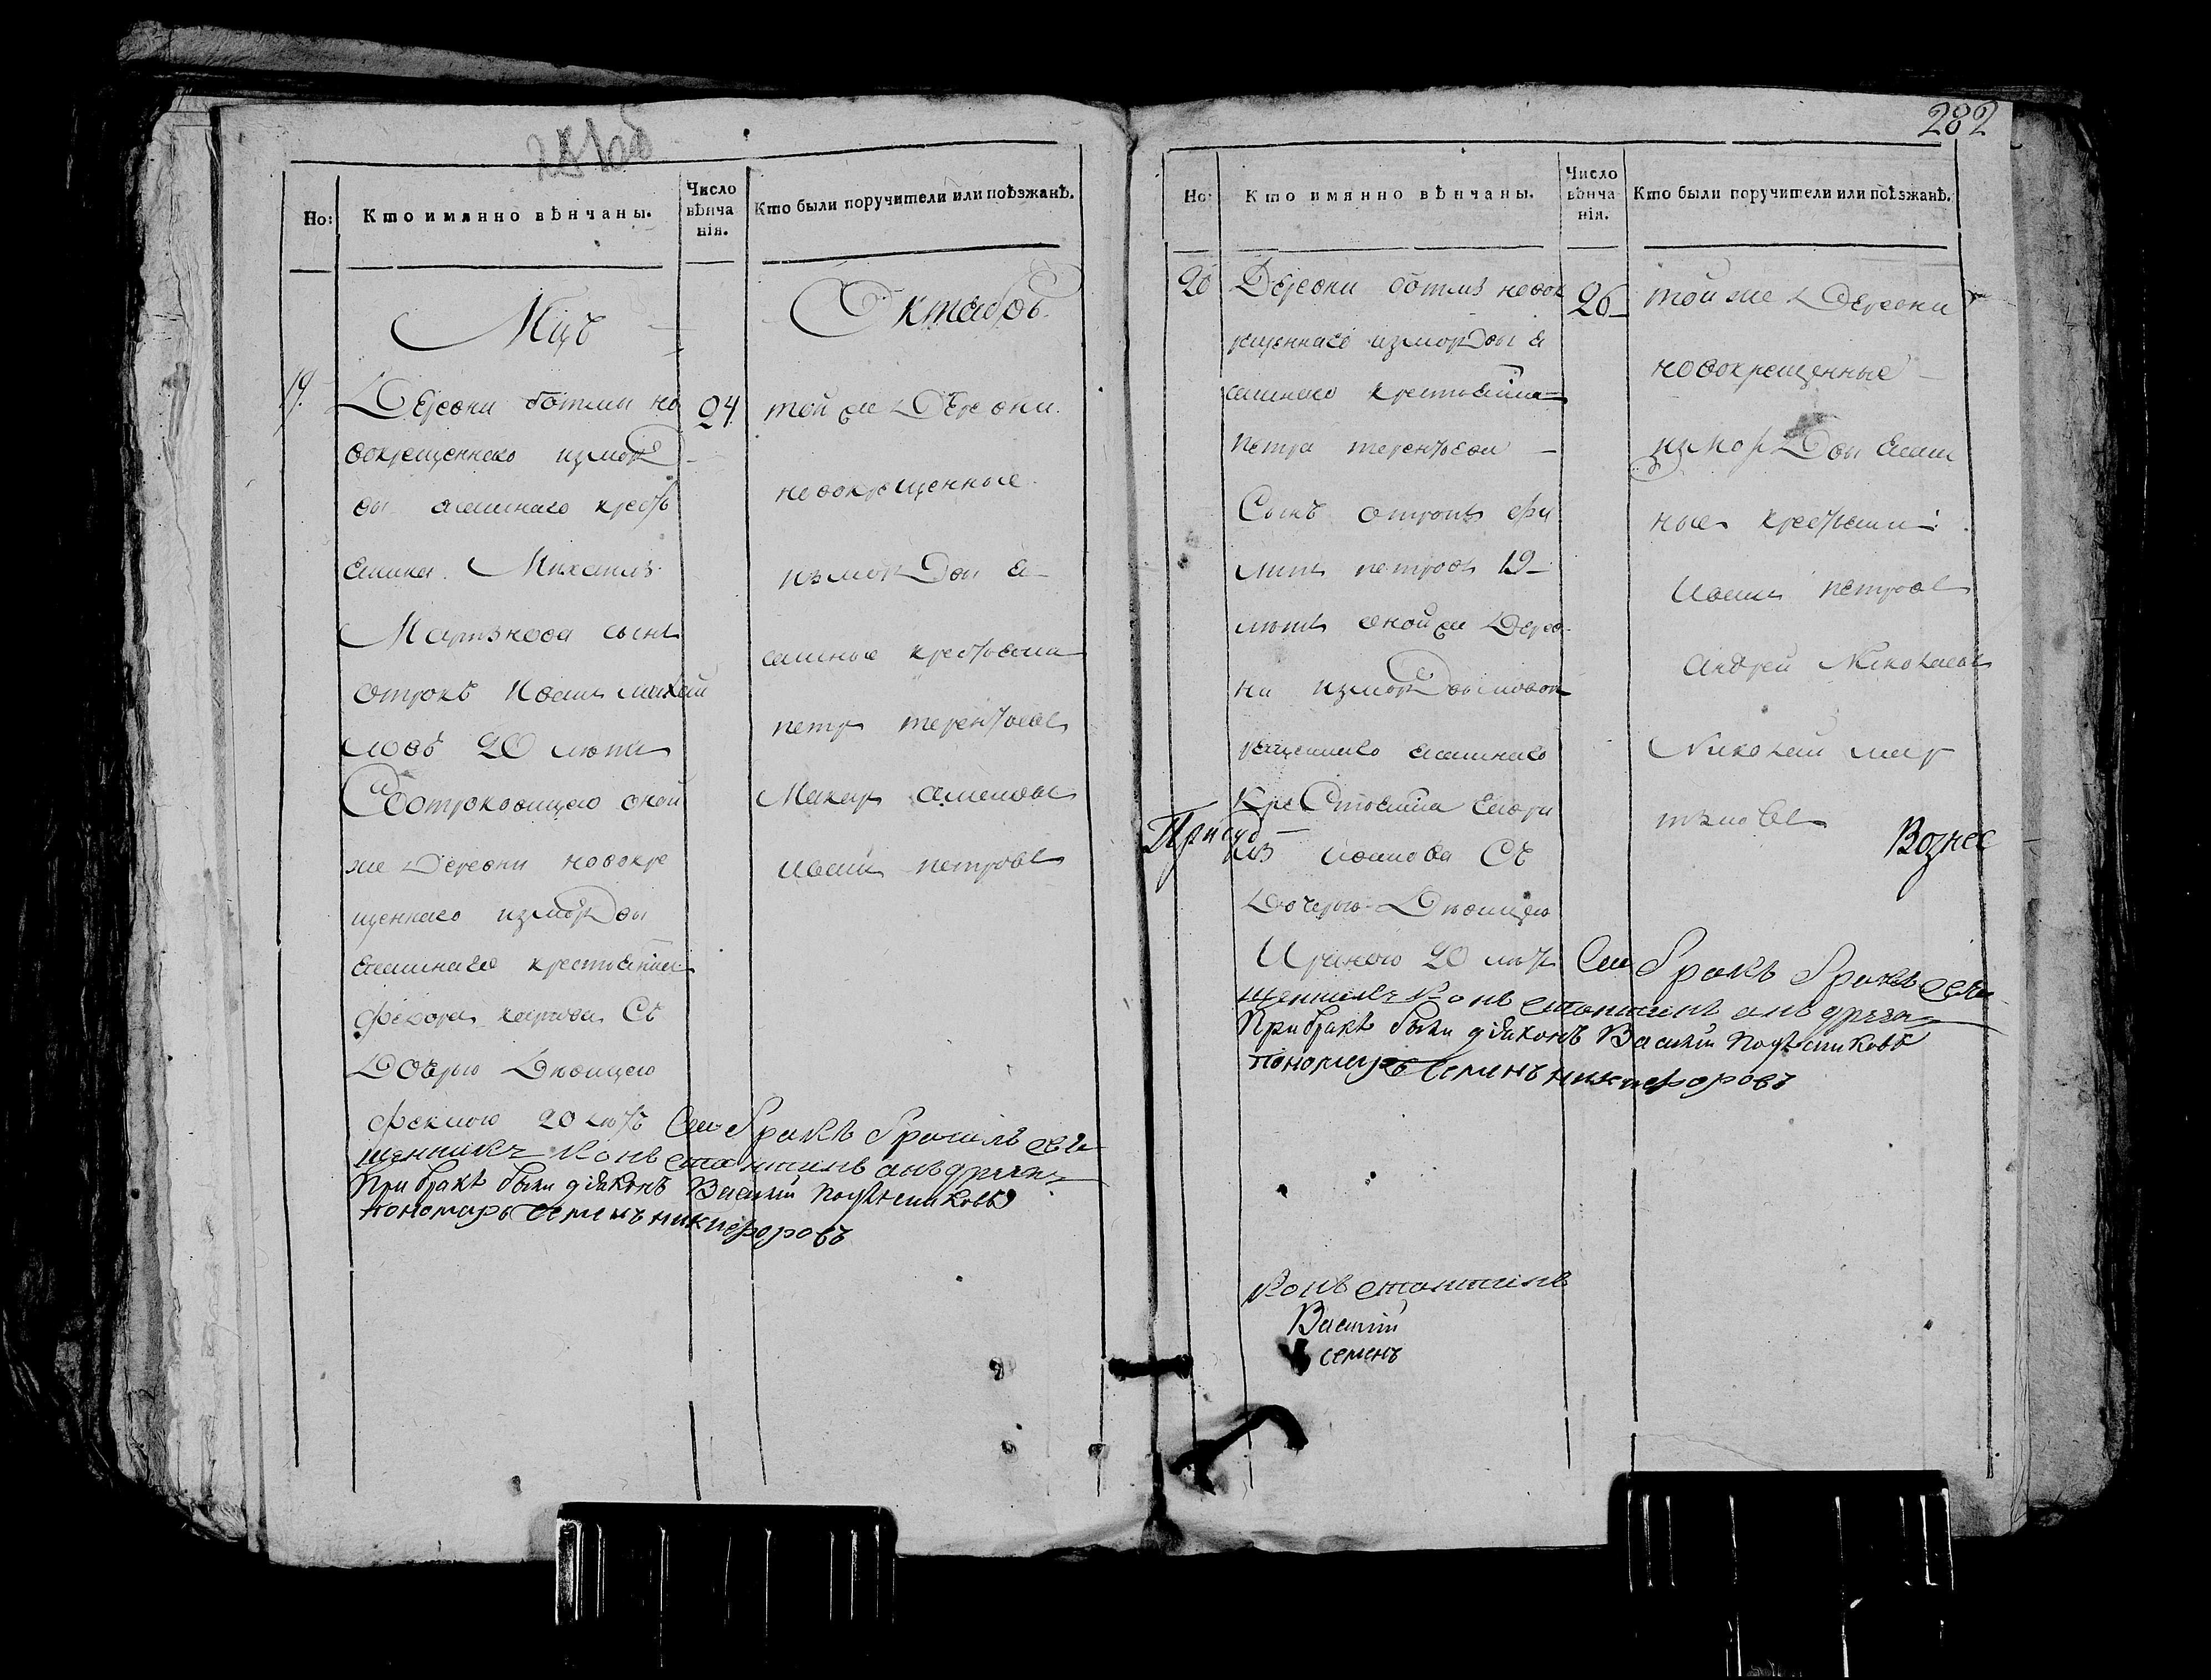 282
Но:
Кто имянно вѣнчаны.
Число
вѣнча
нія.
Кто были поручители или поѣзжанѣ.
Мцъ
Октабрь
19.
Деревни ботмы но
вокрещеннаго измор
вы ясашнаго кресть
янина Михаила
Мартынова сынъ
отрокъ Иванъ михаи
ловъ 20 лѣтъ
Сотроковицею оной
же Деревни новокре
щеннаго измордвы
ясашнаго крестьянина
федора карпова Съ
Дочерью Дѣвицею
феклою 20 лѣтъ
24
той же Деревни
новокрещенные
измордвы я
сашные крестьяна
петръ терентьевъ
Макаръ
иванъ петровъ
Сей бракъ брачилъ свя
щенникъ Конъстантинъ анъдреевъ
При бракѣ были діяконъ Василий
пономарь Семенъ никифоровъ
Но:
Кто имянно вѣнчаны.
Число
вѣнча
нія.
Кто были поручители или поѣзжанѣ.
20
Деревни ботмы новок
рещеннаго измордвы я
сашнаго крестьянина
петра терентьева
Сынъ отрокъ фи
липъ петровъ 19
лѣтъ оной же Дерев
ни измордвы новок
рещеннаго ясашнаго
Крестьянина
иванова Съ
Дочерью Дѣвицею
Ириною 20 лѣтъ
26
той же Деревни
новокрещенные
измордвы ясаш
ные крестьяни
Иванъ петровъ
андрей Николаевъ
Николай мар
тыновъ
Присуд
Вознес
Сей бракъ бракилъ свя
щенникъ Конъстантинъ анъдреевъ
При бракѣ были діяконъ Василий
пономарь Семенъ никифоровъ
Конъстантинъ
Василий
семенъ